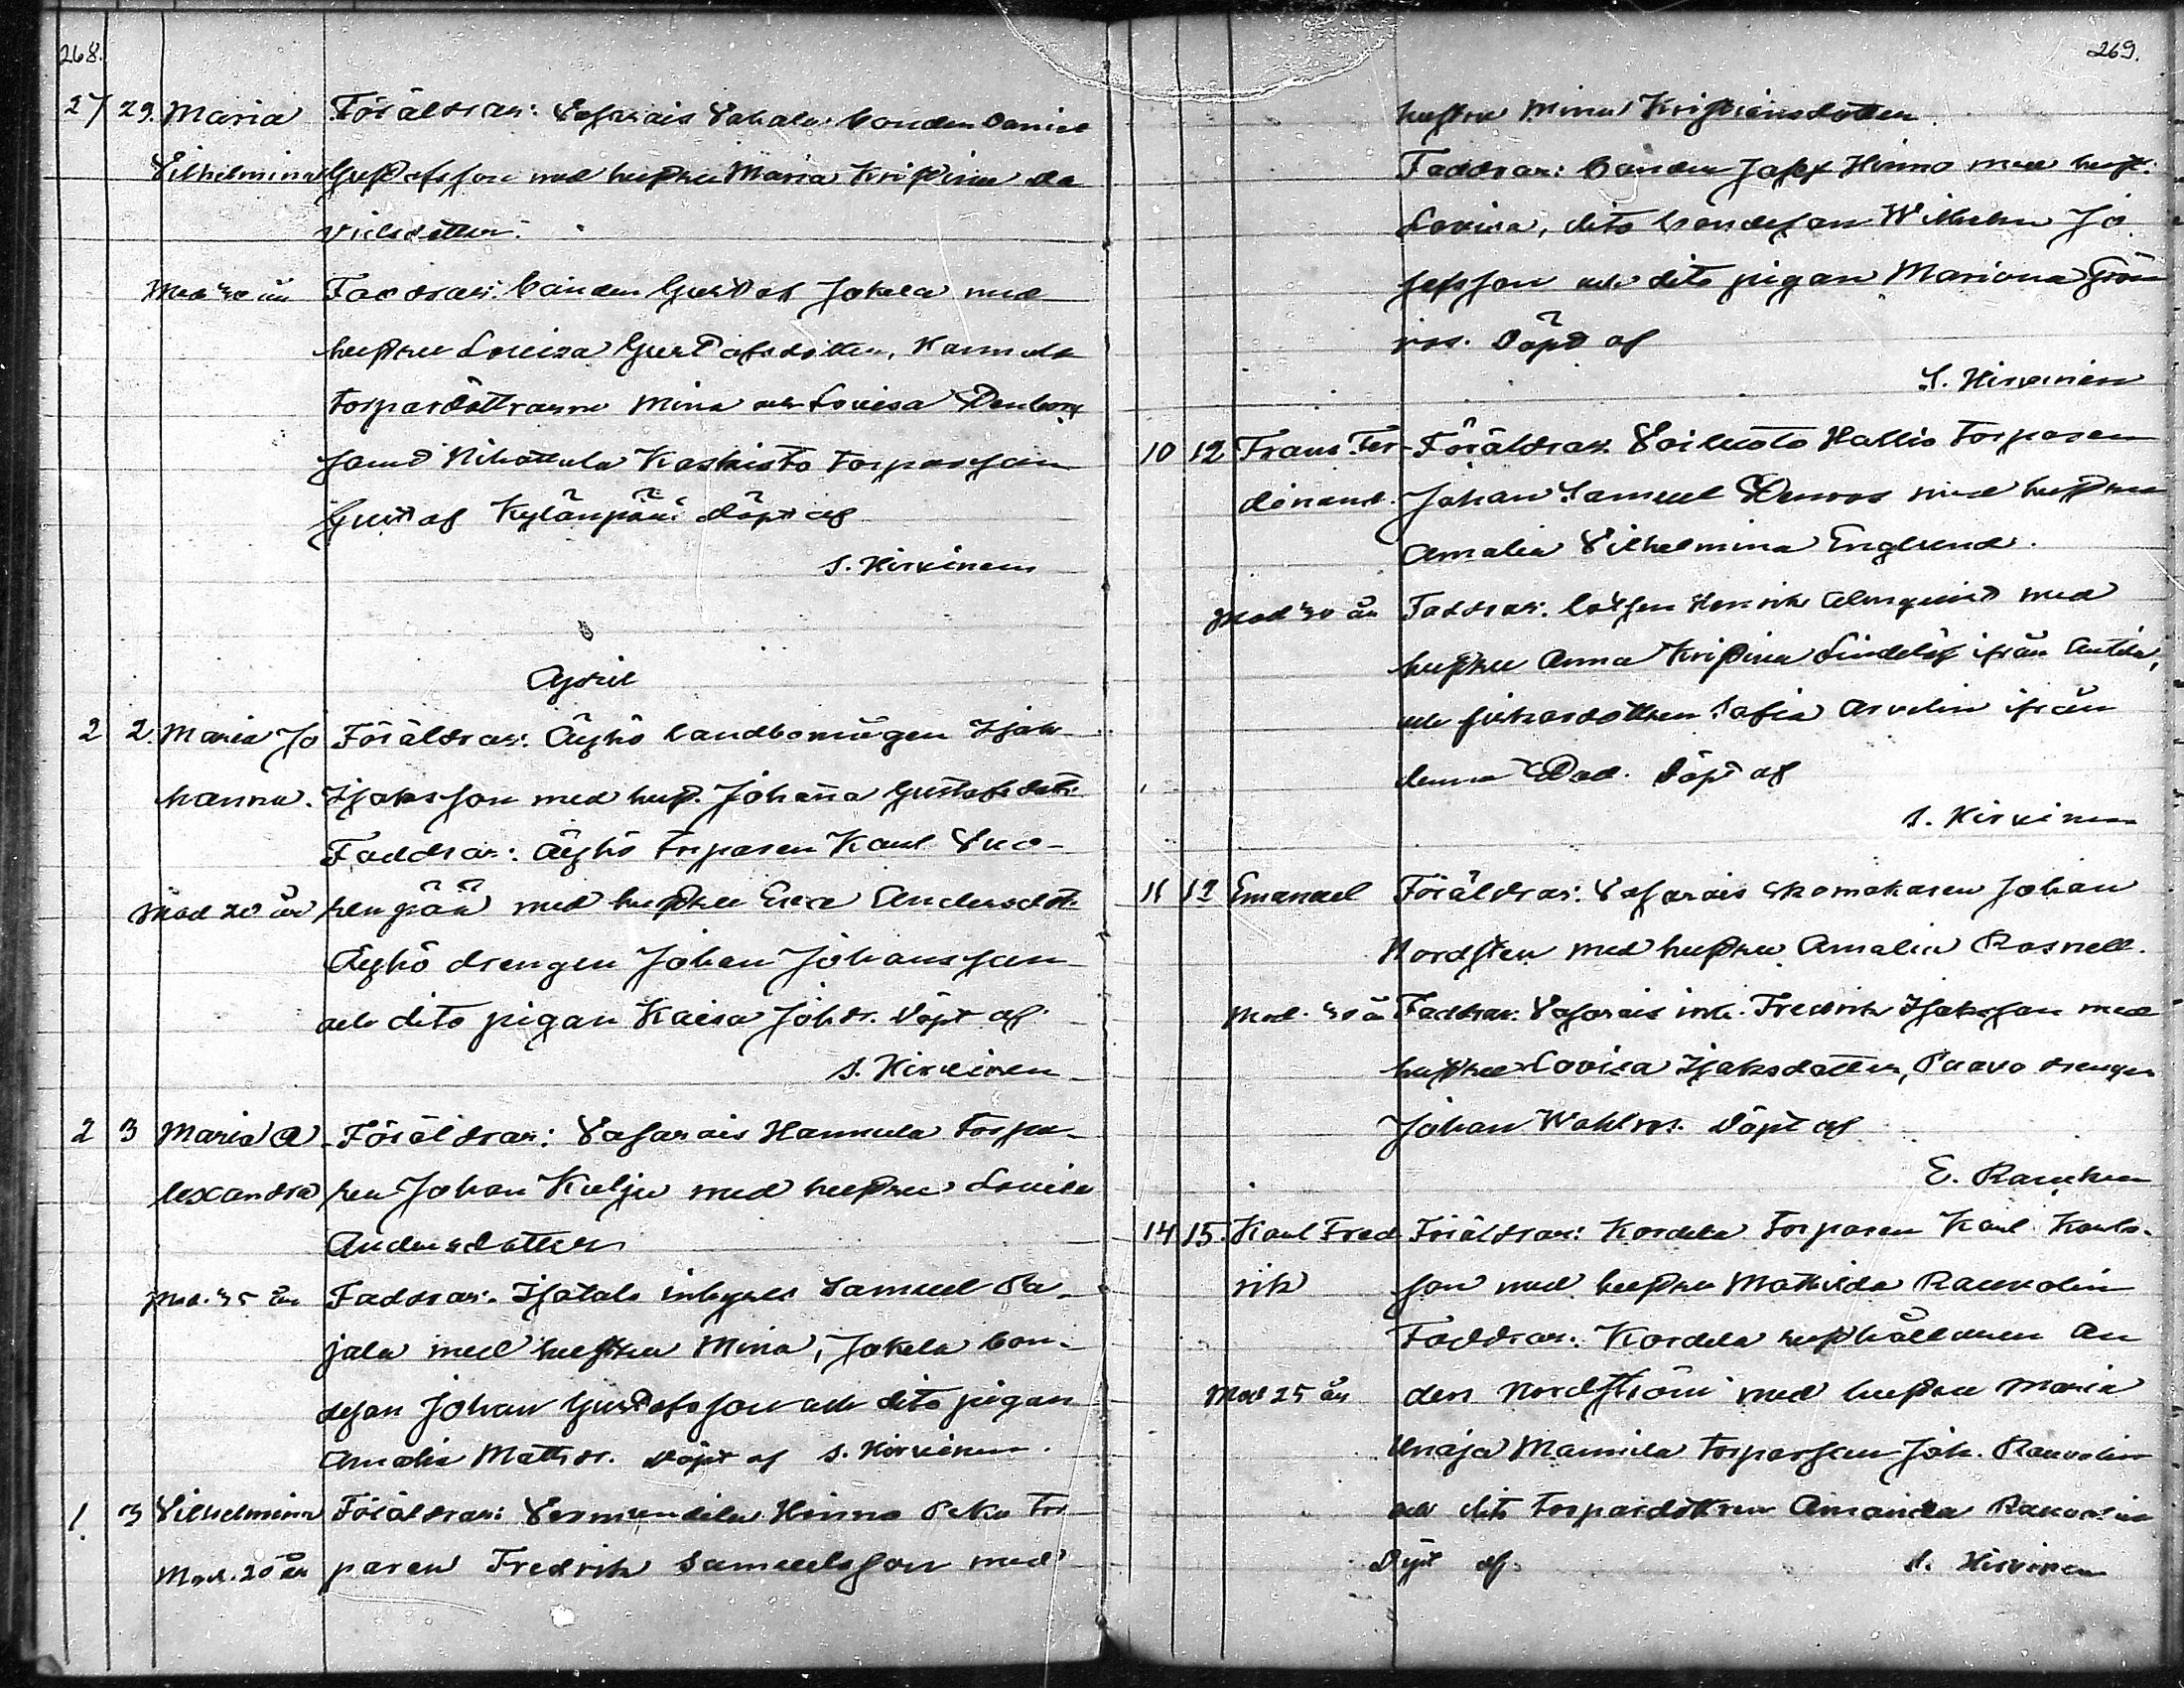 268.
27 29. Maria Föräldrar: Vasarais Vahala bonden Daniel
Vilhelmina Gustafsson med hustru Maria Kristina Da
vidsdotter.
Mod 30 år Faddrar: bonden Gustaf Jokela med
hustru Lovisa Gustafsdotter, Hannula
torpardöttrarne Mina och Lovisa Stenborg
samt Nihattula Koskisto torparson
Gustaf Kylänpää. Döpt af
S. Hirvinen
April
2 2. Maria Jo Föräldrar: Äyhö landbomågen Isak
hanna. Isaksson med hust. Johanna Gustafsdotr
Faddrar: Äyhö torparen Karl Vuo-
Mod 20 år renpää med hustru Eva Andersdotr
Äyhö drengen Johan Johansson
och dito pigan Kaisa Johdr. Döpt af
S. Hirvinen
2 3 Maria A- Föräldrar: Vasarais Hannula torpa-
lexandra ren Johan Kulju med hustru Lovisa
Andersdotter
Mod. 35 år Faddrar: Isotalo inhyses Samuel Pa-
jala med hustru Mina, Jokela bon-
deson Johan Gustafsson och dito pigan
Amalia Mattsdr. Döpt af S. Hirvinen.
1. 3 Vilhelmina Föräldrar: Vermundila Hinno Peko tor
Mod. 20 år paren Fredrik Samuelsson med
269.
hustru Mina Kristiansdotter
Faddrar: bonden Josef Hinno med hust:
Lovisa, dito bondeson Wilhelm Jo
sefsson och dito pigan Mariana Grön
ros. Döpt af
S. Hirvinen
10 12 Frans Fer- Föräldrar: Voiluoto Hallio torparen
dinand. Johan Samuel Stenros med hustru
Amalia Vilhelmina Englund.
Mod 30 år Faddrar: lotsen Henrik Almqvist med
hustru Anna Kristina Lindelöf ifrån Antila,
och fiskardottren Sofia Arvelin ifrån
denna Stad. Döpt af
S. Hirvinen
11 12 Emanuel Föräldrar: Vasarais skomakaren Johan
Nordsten med hustru Amalia Rosnell.
Mod. 30 år Faddrar: Vasarais inh. Fredrik Isaksson med
hustru Lovisa Isaksdotter, Paavo drengen
Johan Wahlros. Döpt af
E. Rauhen
14 15. Karl Fred Föräldrar: Kordela torparen Karl Karls-
rik son med hustru Mathilda Rauvolin
Faddrar: Kordela rusthållaren An
Mod 25 år ders Nordström med hustru Maria
Unaja Mannila torparson Joh. Rauvolin
och dito torpardottren Amanda Rauvolin
Döpt af S. Hirvinen